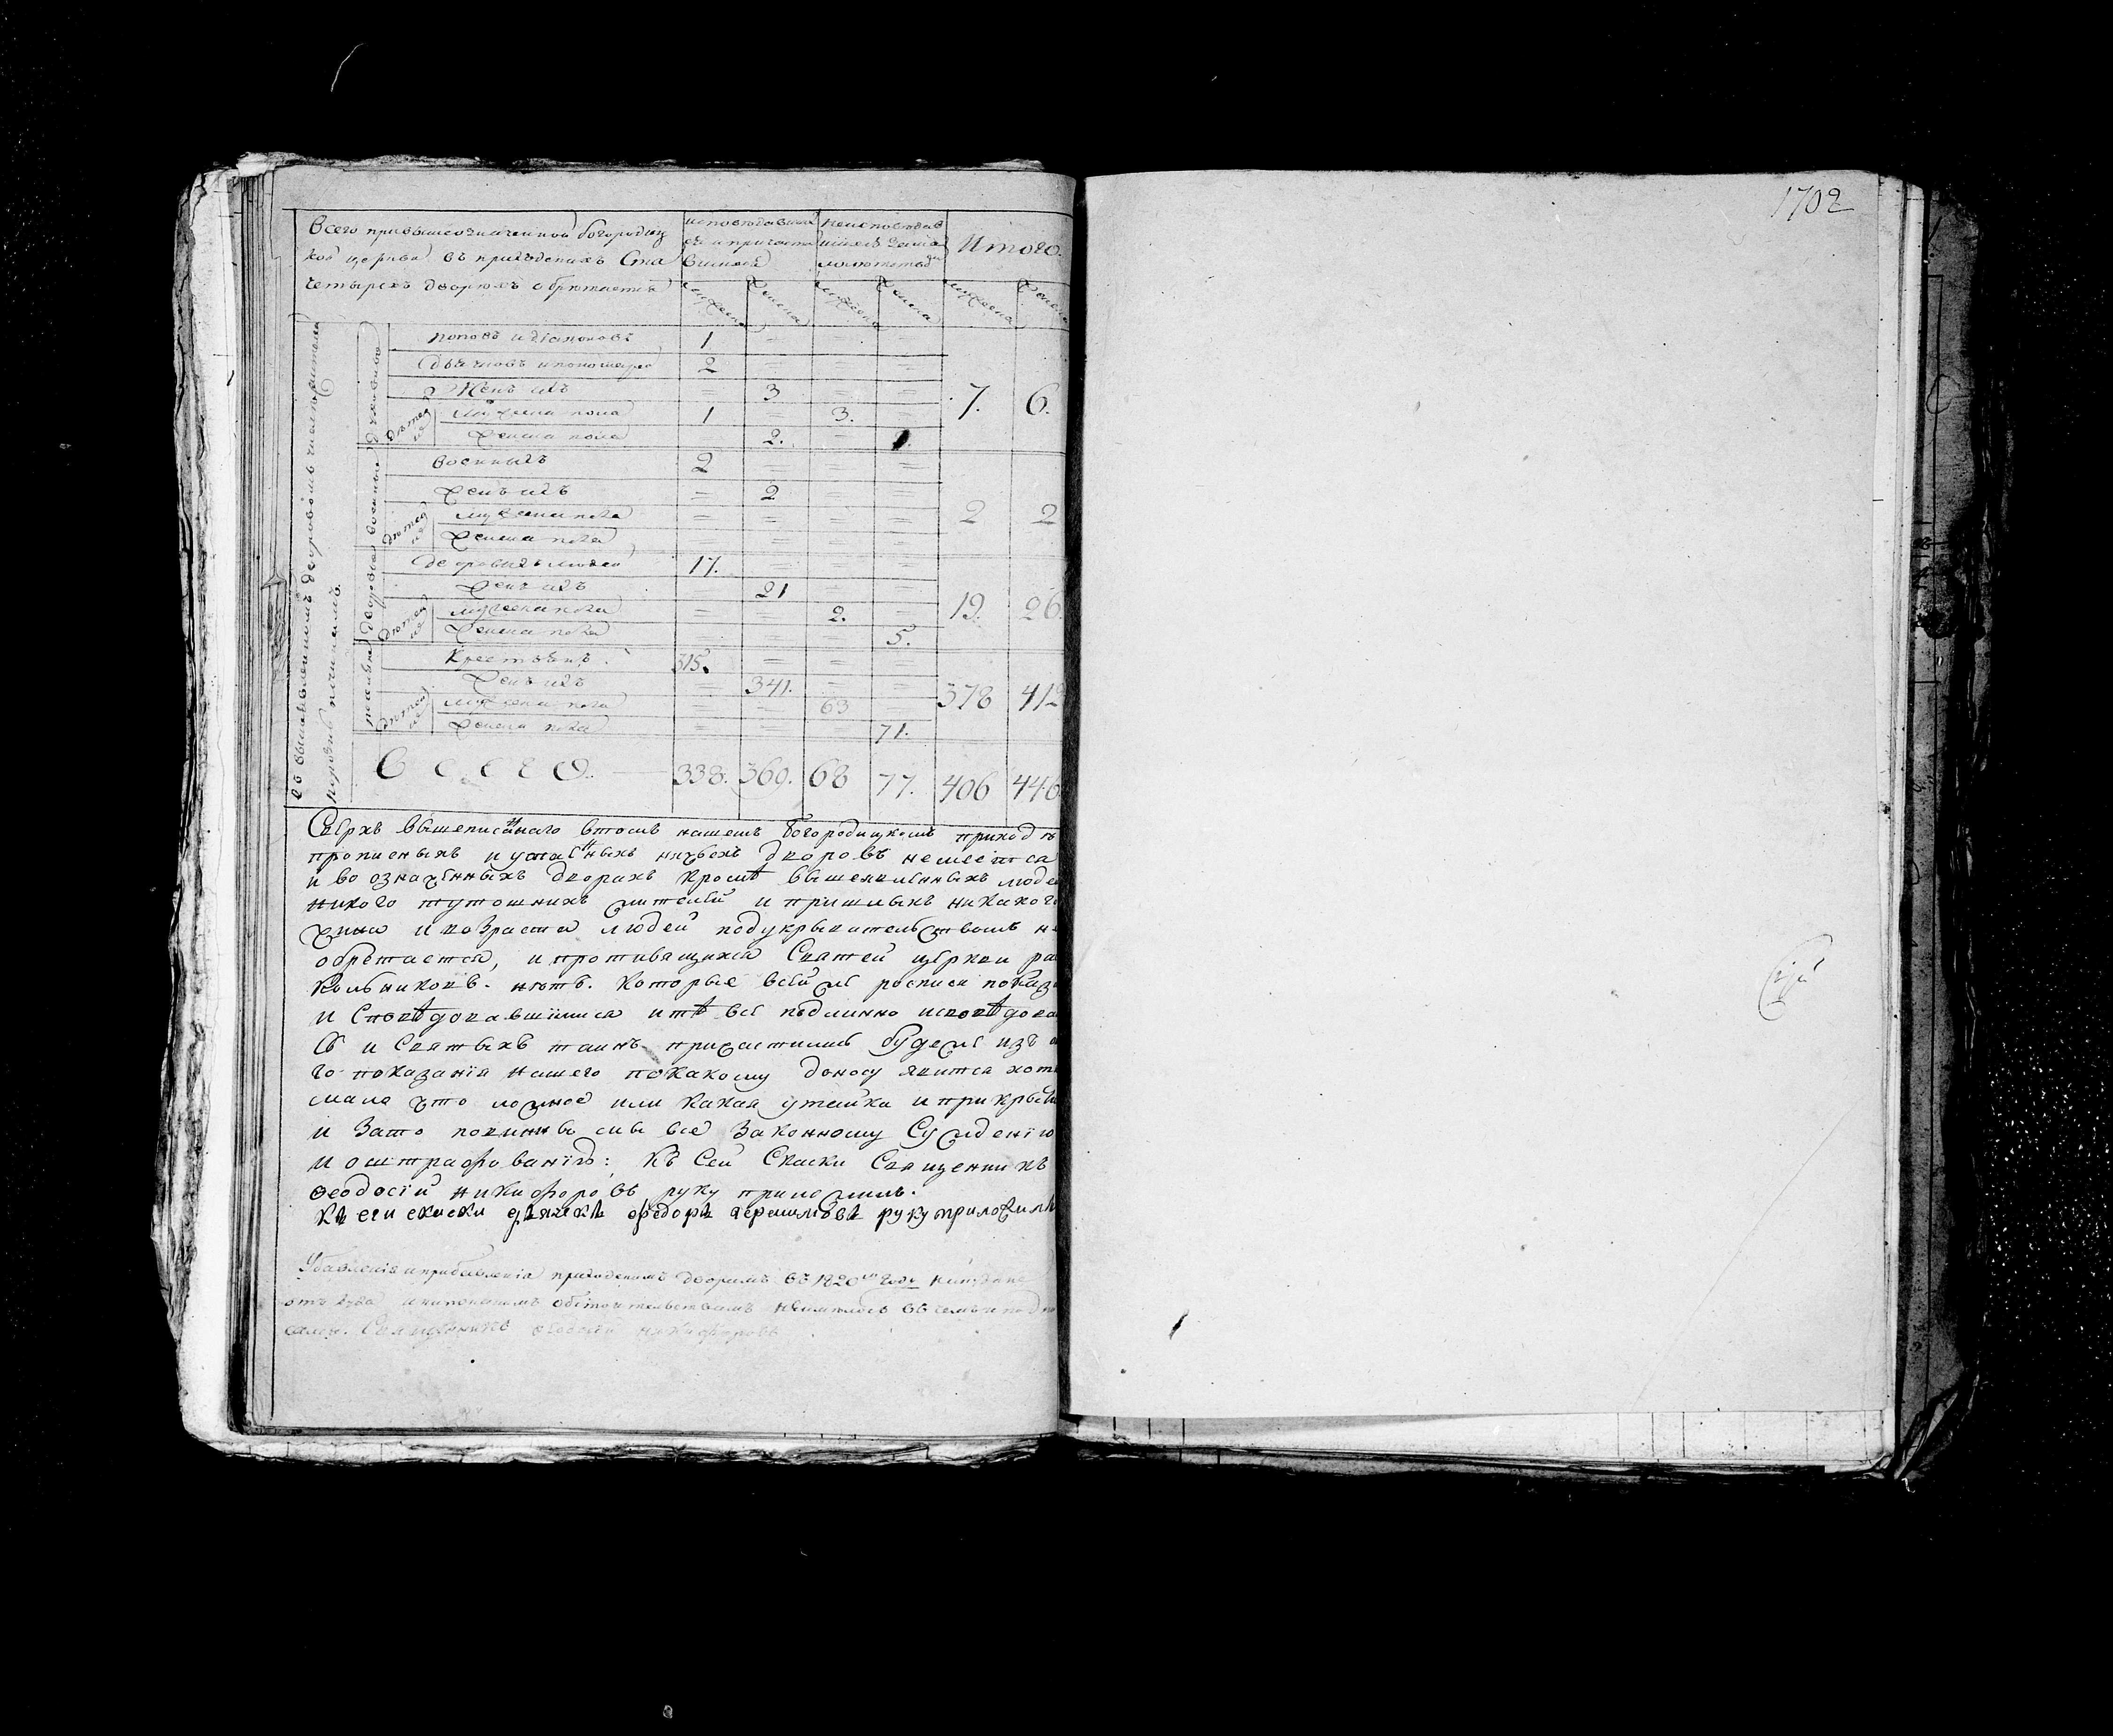 1702
Всего привышеозначенной богородиц
кой церкви въ приходскихъ Ста
четырехъ дворахъ обретается
исповедавши
ся и причасти
вшихся
неисповедав
шихся зама
лолетством
Итого.
мужеска женска мужеска женска мужеска женска
духовные
поповъ и дiаконовъ 1 = = =
дьячковъ и пономарей 2 = = = 7. 6.
Женъ ихъ = 3 = =
детей их
мужеска пола 1 = 3.
женска пола 2. =
военные
военныхъ 2 = = =
женъ ихъ = 2 = 2 2
детей их
мужеска пола = = =
женска пола = = = =
дворовые
дворовыхъ людей 17. = = =
женъ ихъ = 21 19. 26.
детей их
мужеска пола = = 2. =
женска пола = = = 5.
поселяне
Крестьянъ 315. = = =
женъ ихъ = 341. = = 378 412
детей их
мужеска пола = = 63
женска пола = = = 71.
Всего. 338. 369. 68 77. 406 446
Сверхъ вышеписаннаго втомъ нашемъ богородицкомъ приходѣ
прописныхъ и уталенныхъ никоехъ дворовъ неимеется
и во означенныхъ дворахъ кромѣ вышеявленныхъ люде
никого тутошнихъ жителей и пришлыхъ никакого
чина и возраста людей подукрывательствомъ не
обретается, и противящихся Святей церкви ра
кольниковъ. нѣтъ. Которые всей же росписи показ
и Споведовавшимися итѣ всѣ подлинно исповедова
сь и Святыхъ таинъ причастились буде же изъ
го показанiя нашего покакому доносу явится хотя
мала что ложное или какая утайка и прикрыт
и Зато повинны мы все Законному Сужденiю
и оштрафованiю: Къ Сей Скаски Священникъ
Феодосiй никифоровъ руку приложилъ.
Къ сеи скаски дьячекъ федоръ герасимовъ руку приложилъ
Убавленiя и прибавленiя приходскимъ дворамъ въ 1820мъ годе
обстоятельствамъ неимелось въ чемъ и подпи
Священникъ феодосiй никифоровъ